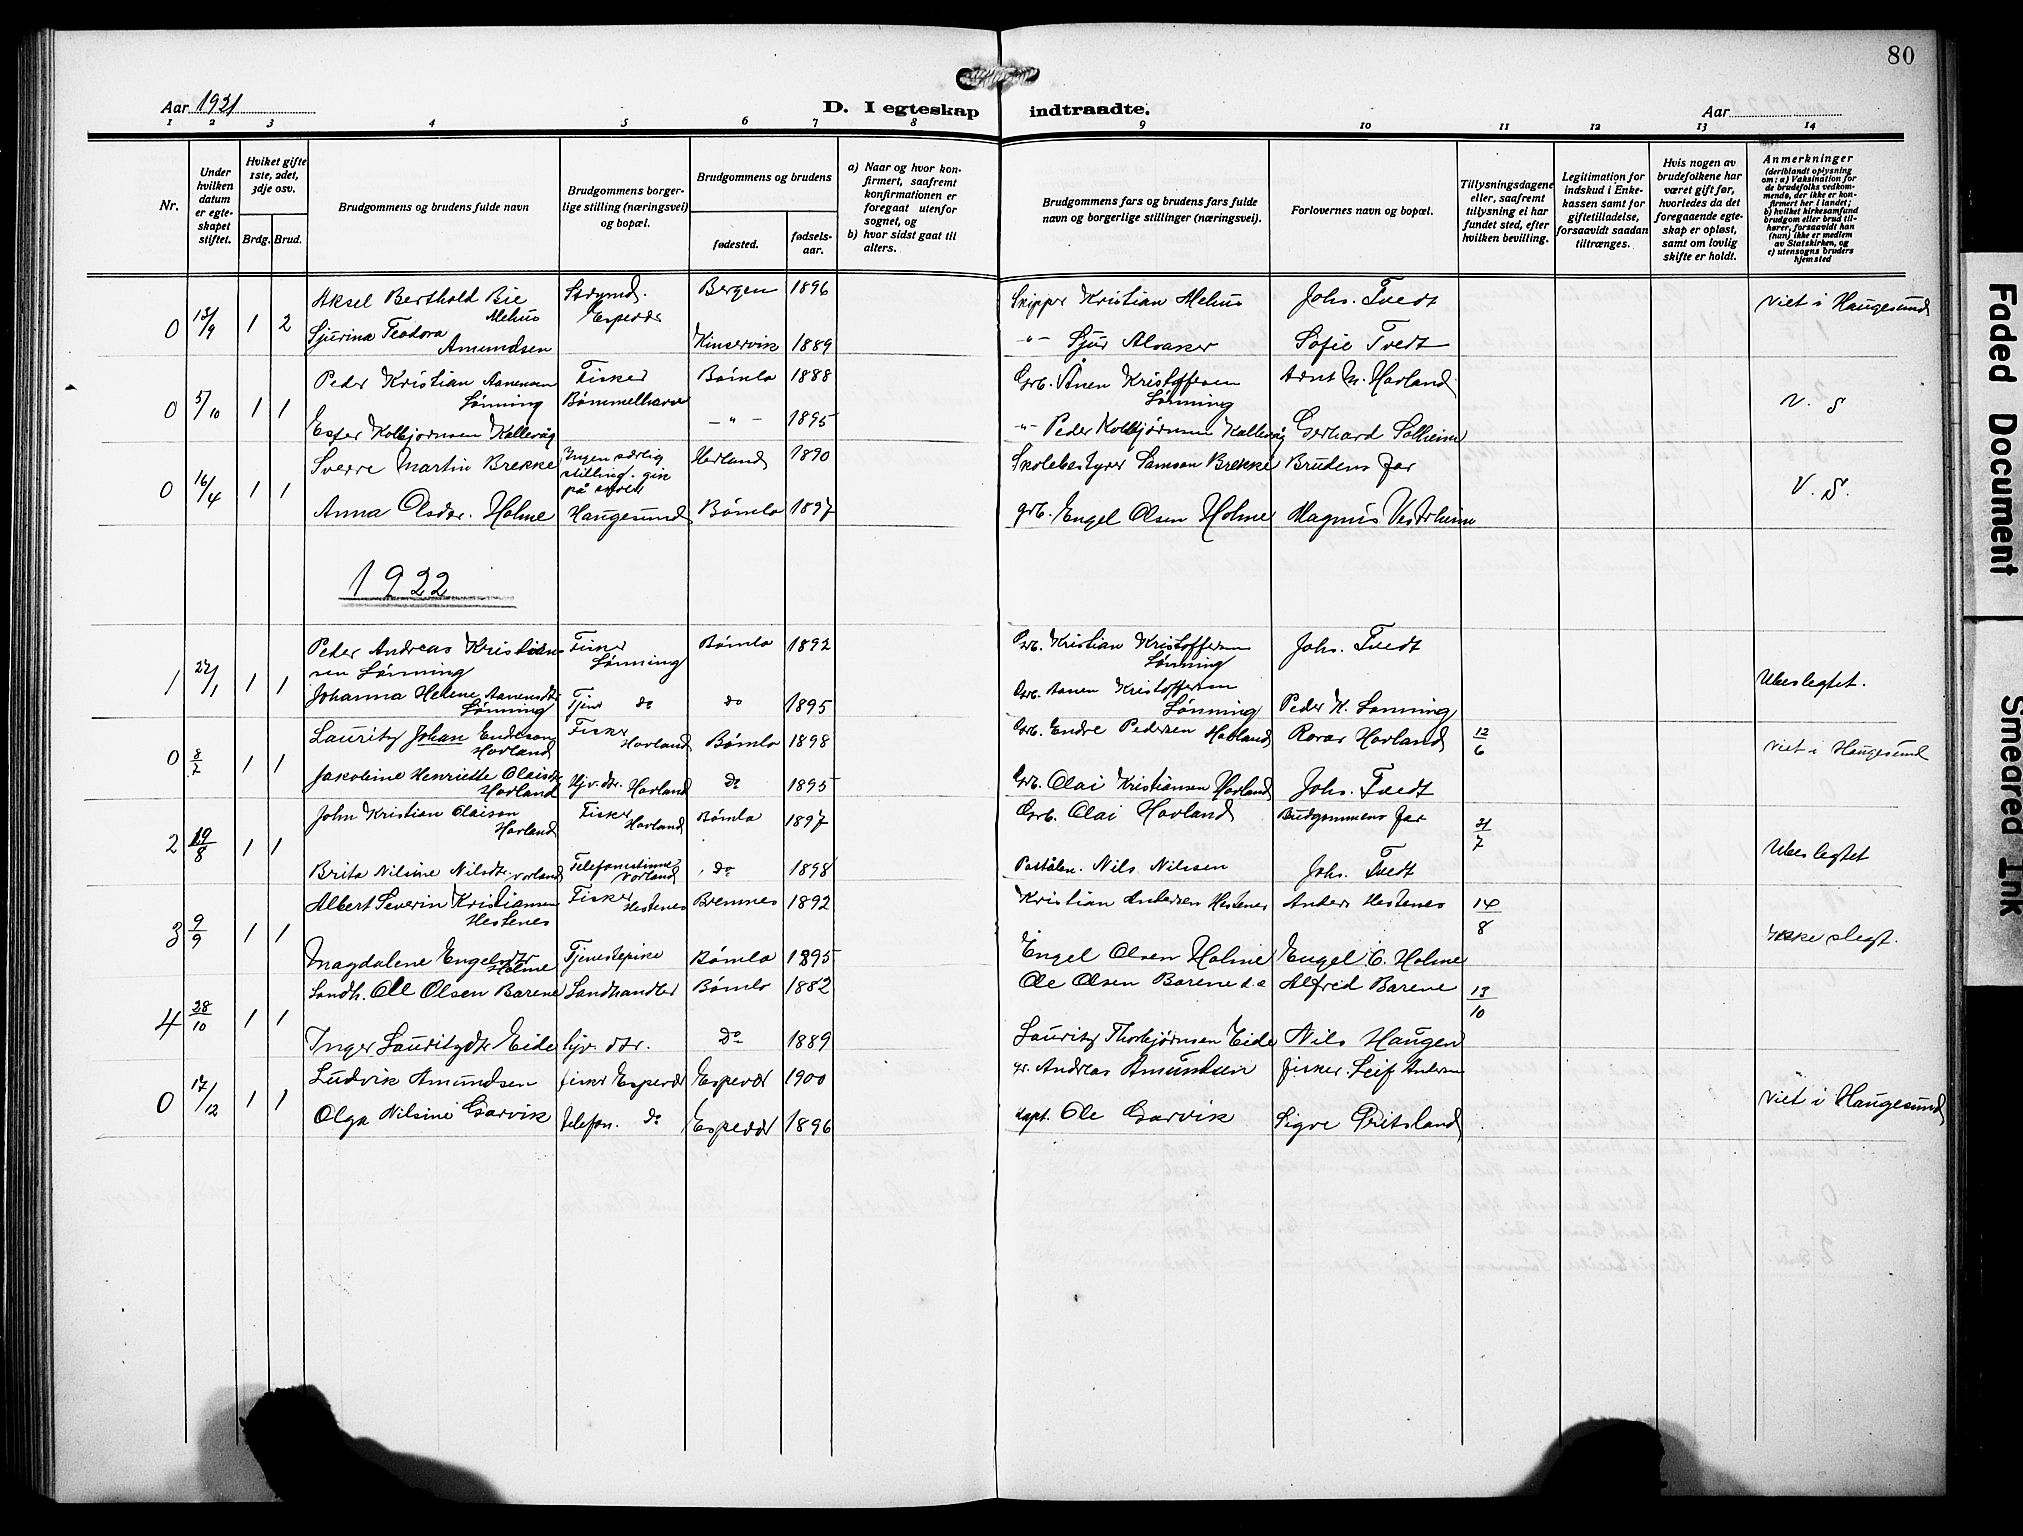 80
Aar 1921
D. I egteskap indtraadte.
Aar
1 2 3 4 5 6 7 8 9 10 11 12 13 14
Nr.
Under hvilken datum er egteskapet stiftet.
Hviket gifte 1ste, 2det, 3dje osv.
Brdg. Brud.
Brudgommens og brudens fulde navn
Brudgommens borgerlige stilling (næringsvei) og bopæl.
Brudgommens og brudens
fødested.
fødselsaar.
a) Naar og hvor konfirmert, saafremt konfirmationen er foregaat utenfor sognet, og
b) hvor sidst gaat til alters.
Brudgommens fars og brudens fars fulde navn og borgerlige stillinger (næringsvei).
Forlovernes navn og bopæl.
Tillysningsdagene eller, saafremt tillysning ei har fundet sted, efter hvilken bevilling.
Legitimation for indskud i Enkekassen samt for giftetilladelse, forsaavidt saadan tiltrænges.
Hvis nogen av brudefolkene har været gift før, hvorledes da det foregaaende egteskap er opløst, samt om lovlig skifte er holdt.
Anmerkninger (deriblandt oplysning om: a) Vaksination for de brudefolks vedkommende, der ikke er konfirmert her i landet; b) hvilket kirkesamfund brudgom eller brud tilhører, forsaavidt han (hun) ikke er medlem av Statskirken, og c) utensogns bruders hjemsted
0 13/9 1 2 Aksel Berthold Bie Mehus Styrmd. Espevær Bergen 1896 Skipper Kristian Mehus Johs. Tvedt Viet i Haugesund
Sjurina Teodora Amundsen Kinservik 1889 -"- Sjur Alsaker Sofie Tvedt
0 5/10 1 1 Peder Kristian Aanensen Lønning Fisker Bømmelhavn Bømlo 1888 Grb. Ånen Kristoffersen Lønning Arnt M. Hovland V. S
Ester Kolbjørnsen Kallevåg -"- 1895 -"- Peder Kolbjørnsen Kallevåg Gerhard Solheim
0 16/4 1 1 Sverre Martin Brekke Ingen særlig stilling. gin på skole Hovland 1890 Skolebestyrer Samson Brekke Brudens far V. S.
Anna Olsdtr. Holme Haugesund Bømlo 1897 grb. Engel Olsen Holme Magnus Vestrheim
1922
1 22/1 1 1 Peder Andreas Kristiansen Lønning Fisker Lønning Bømlo 1892 Grb. Kristian Kristoffersen Lønning Johs. Tvedt Ubeslegtet.
Johanna Helene Aanensdtr Lønning Tjener do do 1895 Grb. Aanen Kristoffersen Lønning Peder K. Lønning
0 8/7 1 1 Lauritz Johan Endreson Hovland Fisker Hovland Bømlo 1898 Grb. Endre Pedersen Hovland Roar Hovland 12/6 Viet i Haugesund
Jakobine Henriette Olaisdtr Hovland Hjv. dtr. Hovland do 1895 Grb. Olai Kristiansen Hovland Johs. Tvedt
2 19/8 1 1 John Kristian Olaison Hovland Fisker Hovland Bømlo 1897 Grb. Olai Hovland Budgommens far 31/7 Ubeslegtet
Brita Nilsine Nilsdtr. Vorland Telefonistinne Vorland do 1898 Poståbn. Nils Nilssen Johs. Tvedt
3 9/9 1 1 Albert Severin Kristiansen Hestenes Fisker Hestenes Bremnes 1892 Kristian Andersen Hestenes Anders Hestenes 14/8 Ikke slegt.
Magdalene Engelsdtr Holme Tjenestepike Bømlo 1895 Engel Olsen Holme Engel O. Holme
4 28/10 1 1 Landh. Ole Olsen Barene Landhandler Bømlo 1882 Ole Olsen Barene d.e Alfred Barene 13/10
Inger Lauritzdtr Eide hjv. dtr. do 1889 Lauritz Thorbjørnsen Eide Nils Haugen
0 17/12 1 1 Ludvik Amundsen fisker Espevær Espevær 1900 gr. Andreas Amundsen fisker Leif Andersen Viet i Haugesund
Olga Nilsine Garvik telefon. do Espevær 1896 kapt. Ole Garvik Sigve Gritsland
Faded Document
Smeared Ink